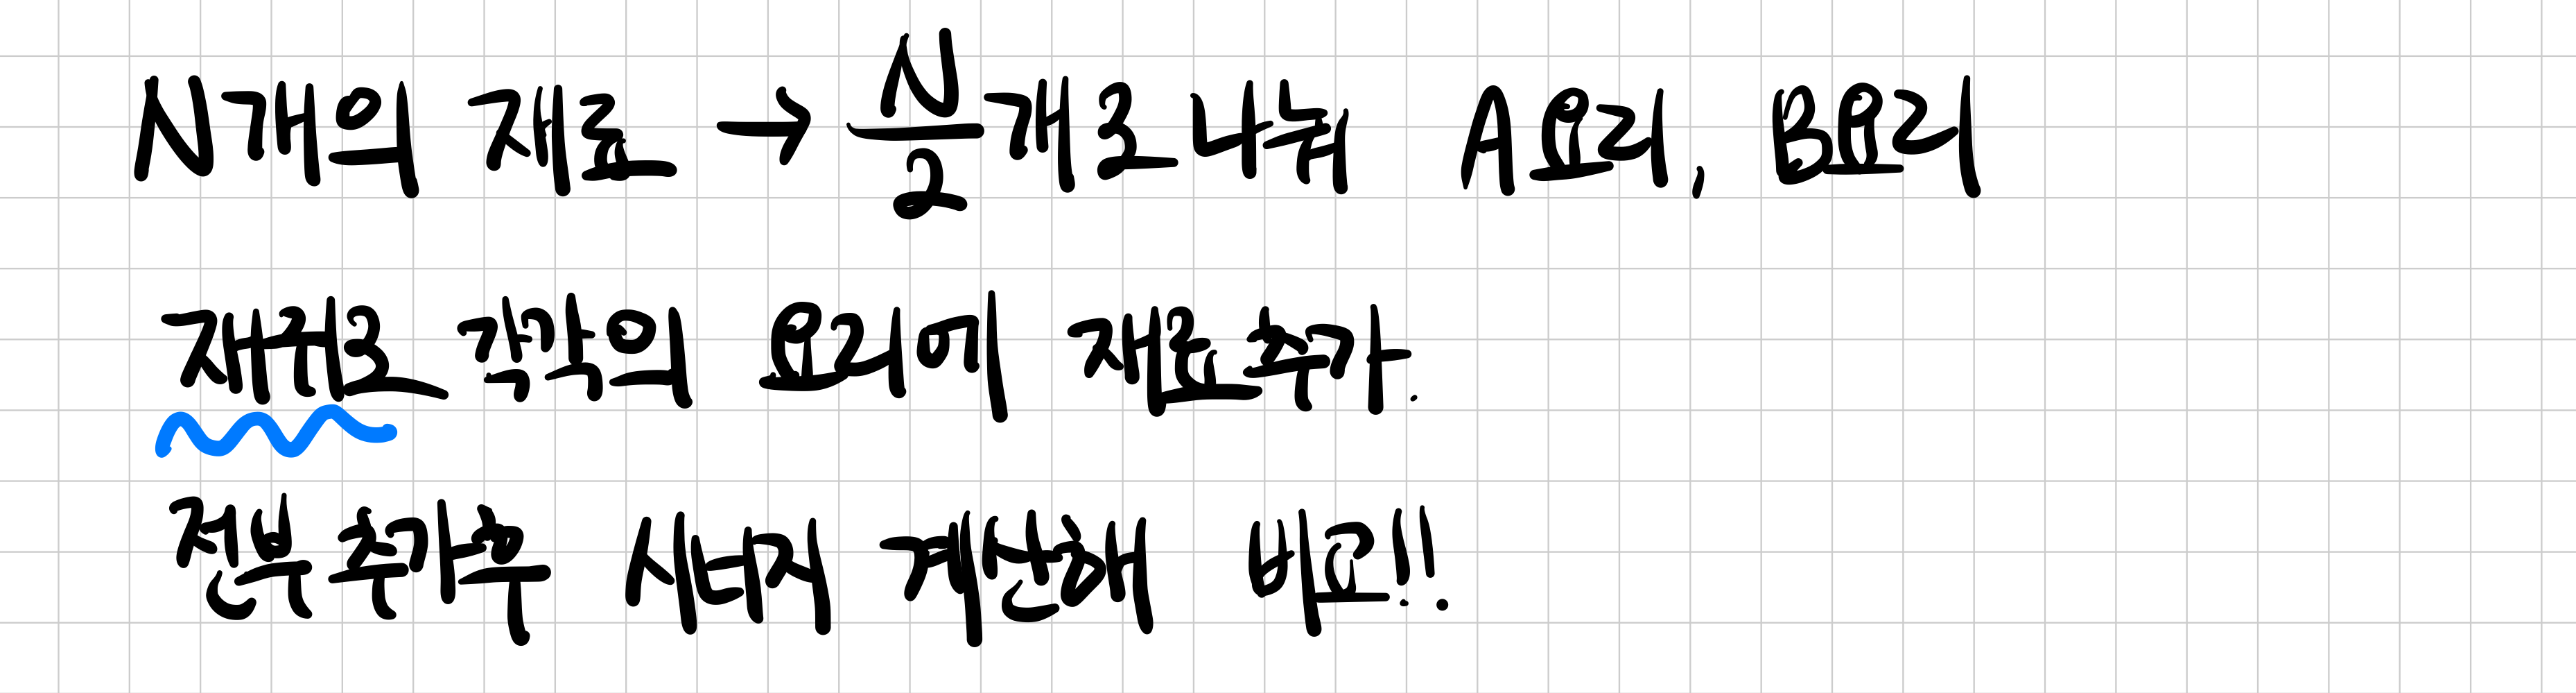 N개의 재료 → N/2개로 나눠 A요리, B요리
재귀로 각각의 요리에 재료추가.
전부추가후 시너지 계산해 비교!!